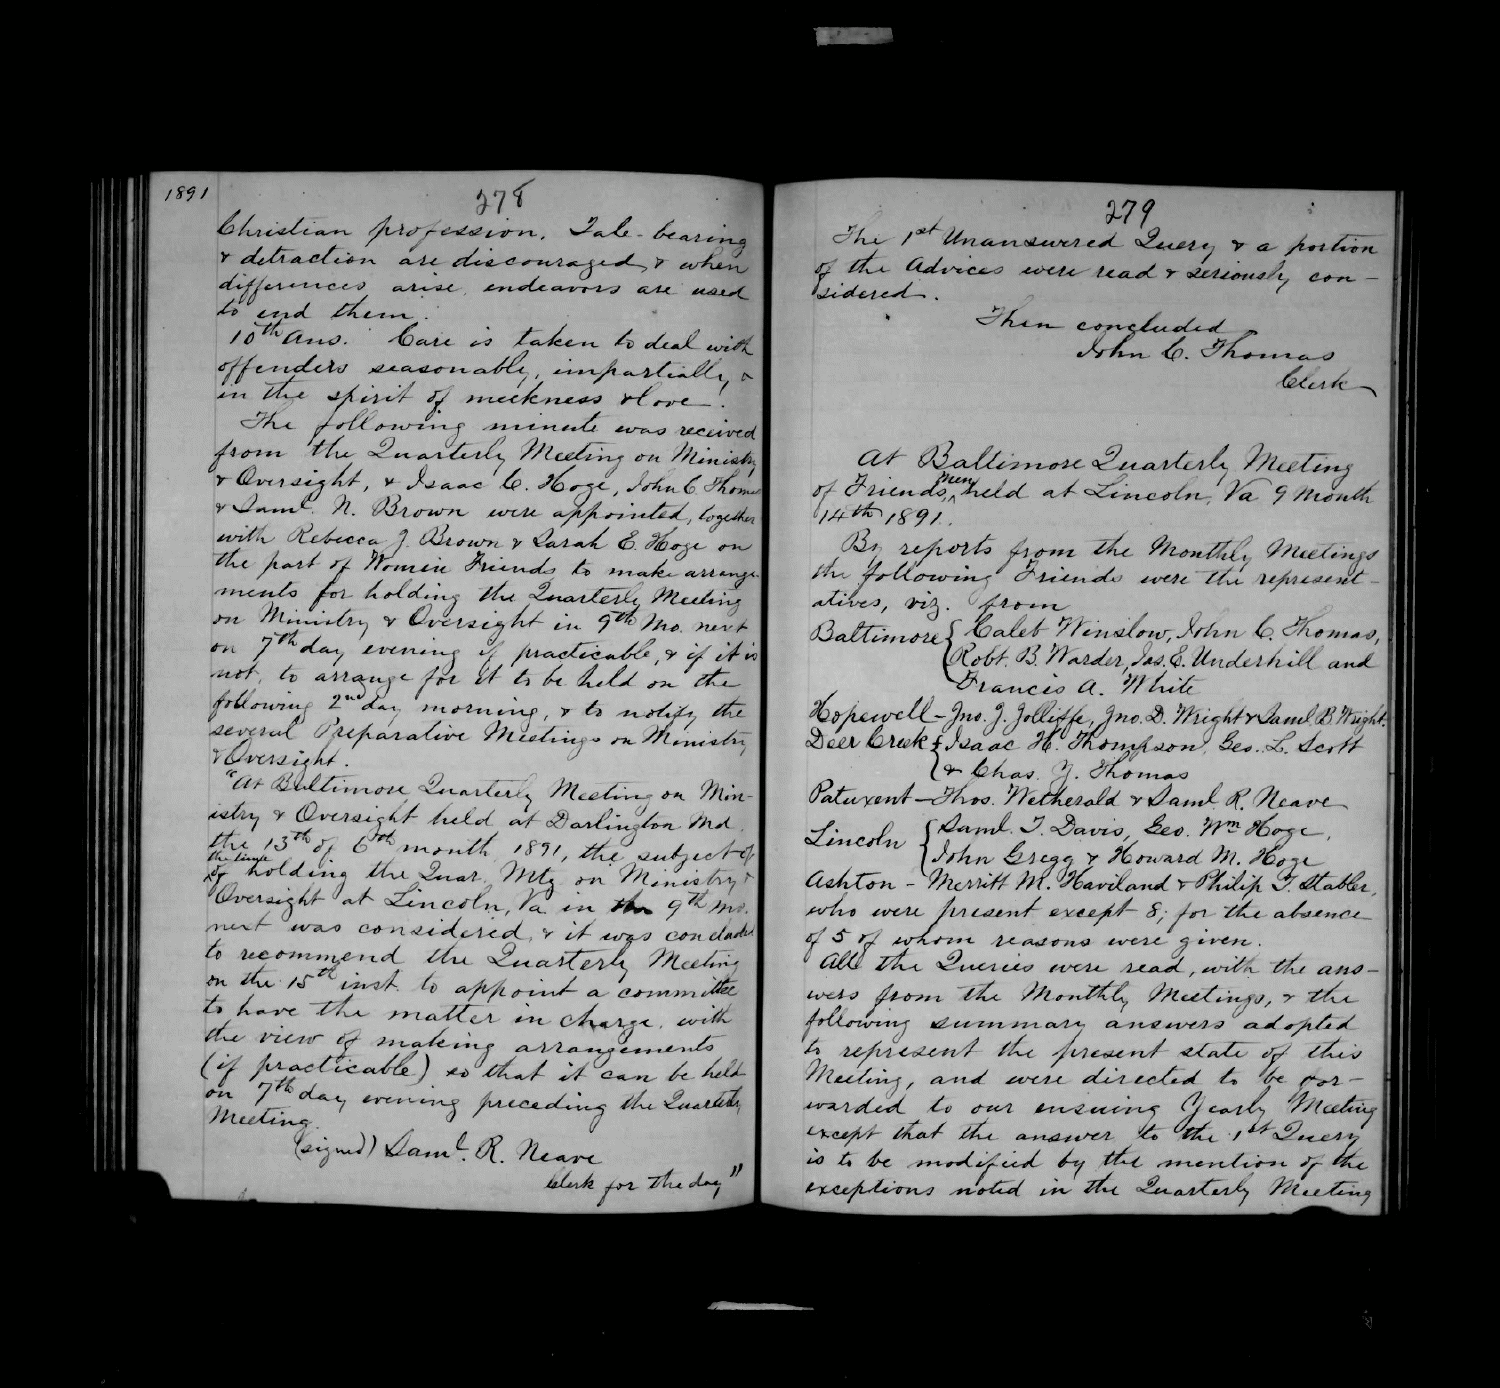 1891
278
Christian profession. Tale-bearing
& detraction are discouraged, & when
differences arise, endeavors are used
to end them.
10th Ans. Care is taken to deal with
offenders seasonably, impartially, &
in the spirit of meekness & love.
The following minute was received
from the Quarterly Meeting on Ministry
& Oversight, & Isaac C. Hoge, John C. Thomas
& Saml. N. Brown were appointed, together
with Rebecca J. Brown & Sarah E. Hoge on
the part of Women Friends to make arrange-
ments for holding the Quarterly Meeting
on Ministry & Oversight in 9th Mo. next
on 7th day evening if practicable, & if it is
not, to arrange for it to be held on the
following 2nd day morning, & to notify the
several Preparative Meetings on Ministry
& Oversight.
"At Baltimore Quarterly Meeting on Min-
istry & Oversight held at Darlington Md.
the 13th of 6th month 1891, the subject of
the time
of holding the Quar. Mtg on Ministry &
Oversight at Lincoln, Va in the 9th mo.
next was considered, & it was concluded
to recommend the Quarterly Meeting
on the 15th inst. to appoint a committee
to have the matter in charge, with
the view of making arrangements
(if practicable) so that it can be held
on 7th day evening preceding the Quarterly
Meeting.
(signed) Saml. R. Neave
Clerk for the day"
279
The 1st Unanswered Query & a portion
of the Advices were read & seriously con-
sidered.
Then concluded
John C. Thomas
Clerk
At Baltimore Quarterly Meeting
of Friends, Men held at Lincoln, Va 9 month
14th 1891.
By reports from the Monthly Meetings
the following Friends were the represent-
atives, viz. from
Baltimore { Caleb Winslow, John C. Thomas,
Robt. B. Warder, Jas. E. Underhill and
Francis A. White
Hopewell - Jno. J. Jolliffe, Jno. D. Wright & Saml. B. Wright.
Deer Creek { Isaac H. Thompson, Geo. L. Scott
& Chas. Y. Thomas
Patuxent - Thos. Wetherald & Saml. R. Neave
Lincoln { Saml. T. Davis, Geo. Wm Hoge,
John Gregg & Howard M. Hoge
Ashton - Merritt M. Haviland & Philip T. Stabler,
who were present except 8; for the absence
of 5 of whom reasons were given.
All the Queries were read, with the ans-
wers from the Monthly Meetings, & the
following summary answers adopted
to represent the present state of this
Meeting, and were directed to be for-
warded to our ensuing Yearly Meeting
except that the answer to the 1st Query
is to be modified by the mention of the
exceptions noted in the Quarterly Meeting